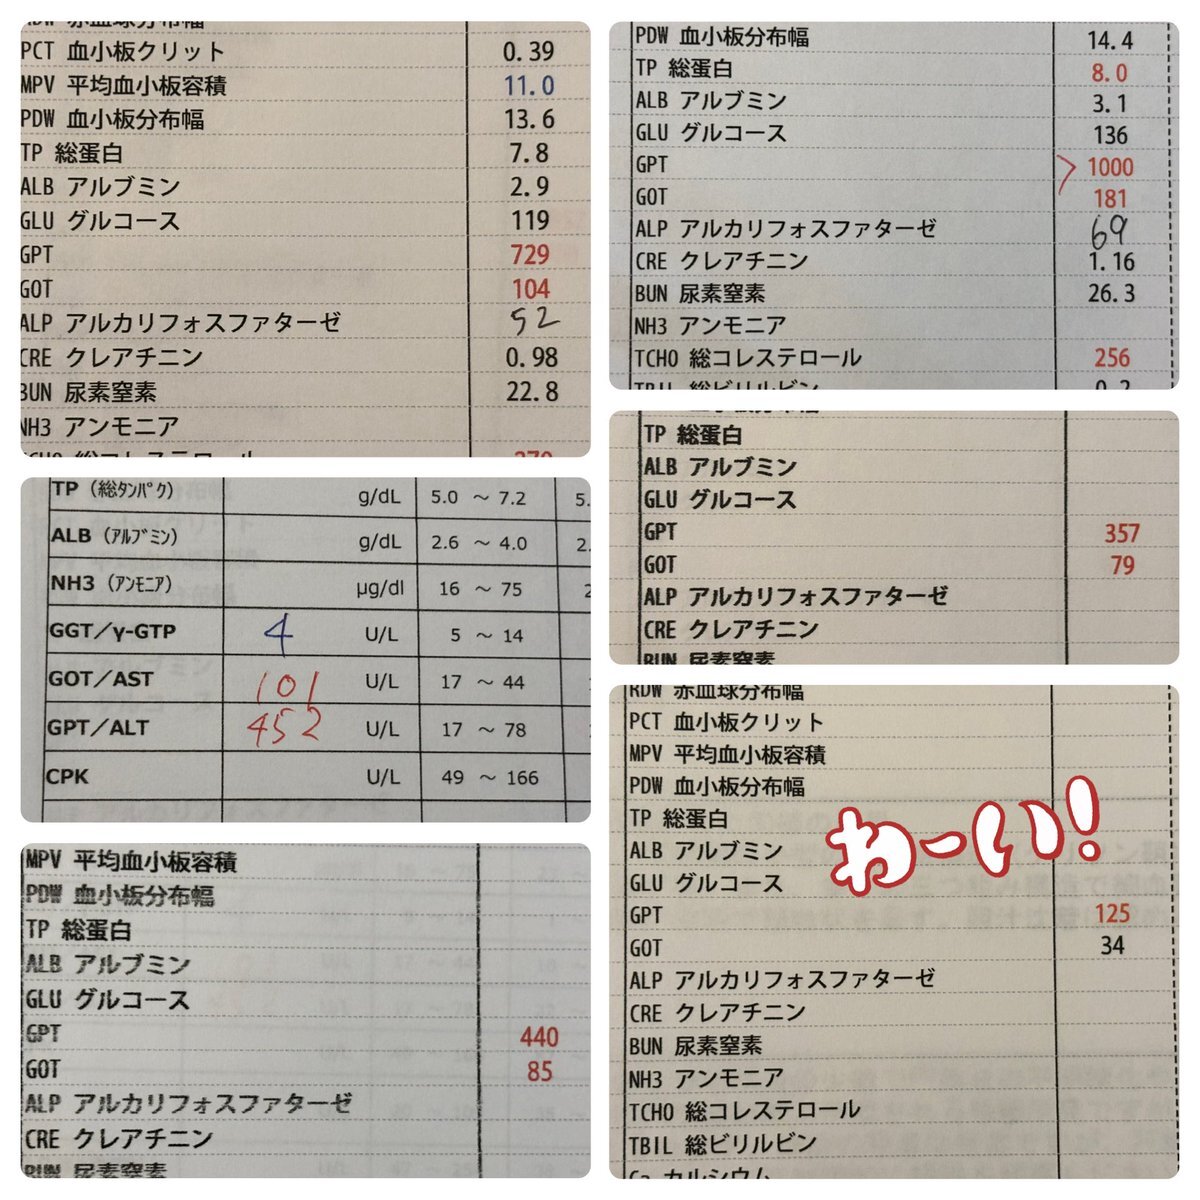 PCT 血小板クリット 0.39
MPV 平均血小板容積 11.0
PDW 血小板分布幅 13.6
TP 総蛋白 7.8
ALB アルブミン 2.9
GLU グルコース 119
GPT 729
GOT 104
ALP アルカリフォスファターゼ 52
CRE クレアチニン 0.98
BUN 尿素窒素 22.8
NH3 アンモニア
TP(総タンパク) g/dL 5.0 ～ 7.2 5.
ALB(アルブミン) g/dL 2.6 ～ 4.0 2.
NH3(アンモニア) μg/dl 16 ～ 75
GGT/γ-GTP 4 U/L 5 ～ 14
GOT/AST 101 U/L 17 ～ 44
GPT/ALT 452 U/L 17 ～ 78
CPK U/L 49 ～ 166
MPV 平均血小板容積
PDW 血小板分布幅
TP 総蛋白
ALB アルブミン
GLU グルコース
GPT 440
GOT 85
ALP アルカリフォスファターゼ
CRE クレアチニン
BUN 尿素窒素
PDW 血小板分布幅 14.4
TP 総蛋白 8.0
ALB アルブミン 3.1
GLU グルコース 136
GPT >1000
GOT 181
ALP アルカリフォスファターゼ 69
CRE クレアチニン 1.16
BUN 尿素窒素 26.3
NH3 アンモニア
TCHO 総コレステロール 256
TP 総蛋白
ALB アルブミン
GLU グルコース
GPT 357
GOT 79
ALP アルカリフォスファターゼ
CRE クレアチニン
BUN 尿素窒素
RDW 赤血球分布幅
PCT 血小板クリット
MPV 平均血小板容積
PDW 血小板分布幅
TP 総蛋白
わーい!
ALB アルブミン
GLU グルコース
GPT 125
GOT 34
ALP アルカリフォスファターゼ
CRE クレアチニン
BUN 尿素窒素
NH3 アンモニア
TCHO 総コレステロール
TBIL 総ビリルビン
Ca カルシウム